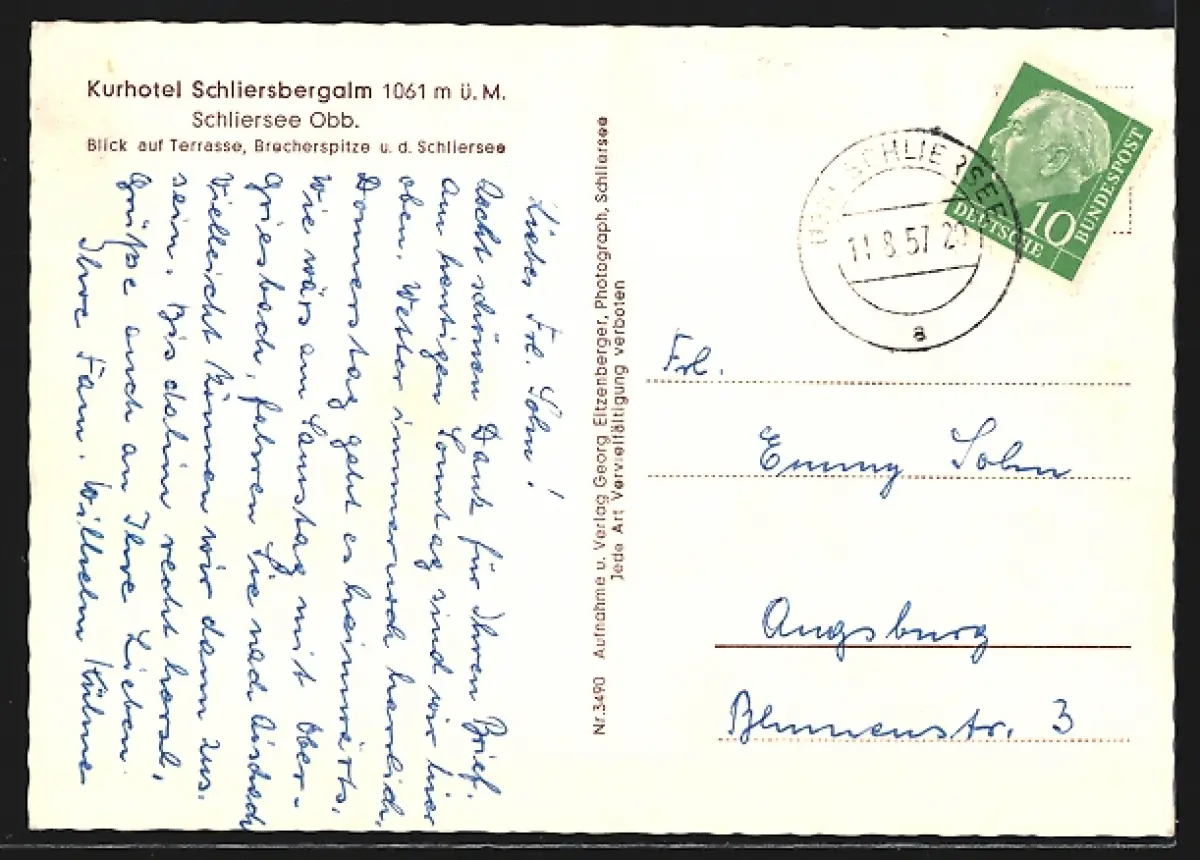 Kurhotel Schliersbergalm 1061 m ü. M.
Schliersee Obb.
Blick auf Terrasse, Brecherspitze u. d. Schliersee
Liebes Frl. Sohn!
Recht schönen Dank für Ihren Brief.
Am heutigen Sonntag sind wir hier
oben. Wetter immer noch herrlich,
Donnerstag geht es heimwärts.
Wie wärs am Samstag mit Ober-
griesbach, fahren Sie nach
Vielleicht können wir dann zus.
sein. Bis dahin recht herzl.
Grüße auch an Ihre Lieben
Ihre Fam. Wilhelm Kühne
Nr. 3490 Aufnahme u. Verlag Georg Eltzenberger, Photograph, Schliersee
Jede Art Vervielfältigung verboten
SCHLIERSEE
11.8.57
a
10
DEUTSCHE
BUNDESPOST
Frl.
Emmy Sohn
Augsburg
Blumenstr. 3